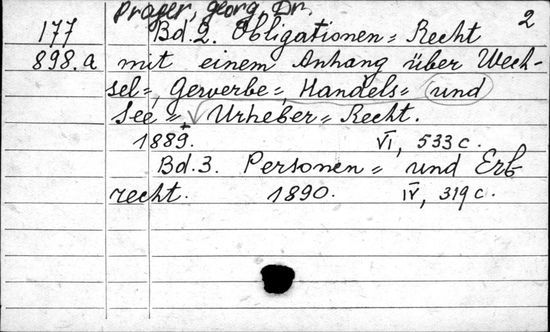 Prager, Georg, Dr.
2
177 Bd. 2. Obligationen= Recht
898.a mit einem Anhang über Wech-
sel=, Gewerbe=, Handels= und
See=, Urheber= Recht.
1889. VI, 533 c.
Bd. 3. Personen= und Erb-
recht. 1890. IV, 319 c.